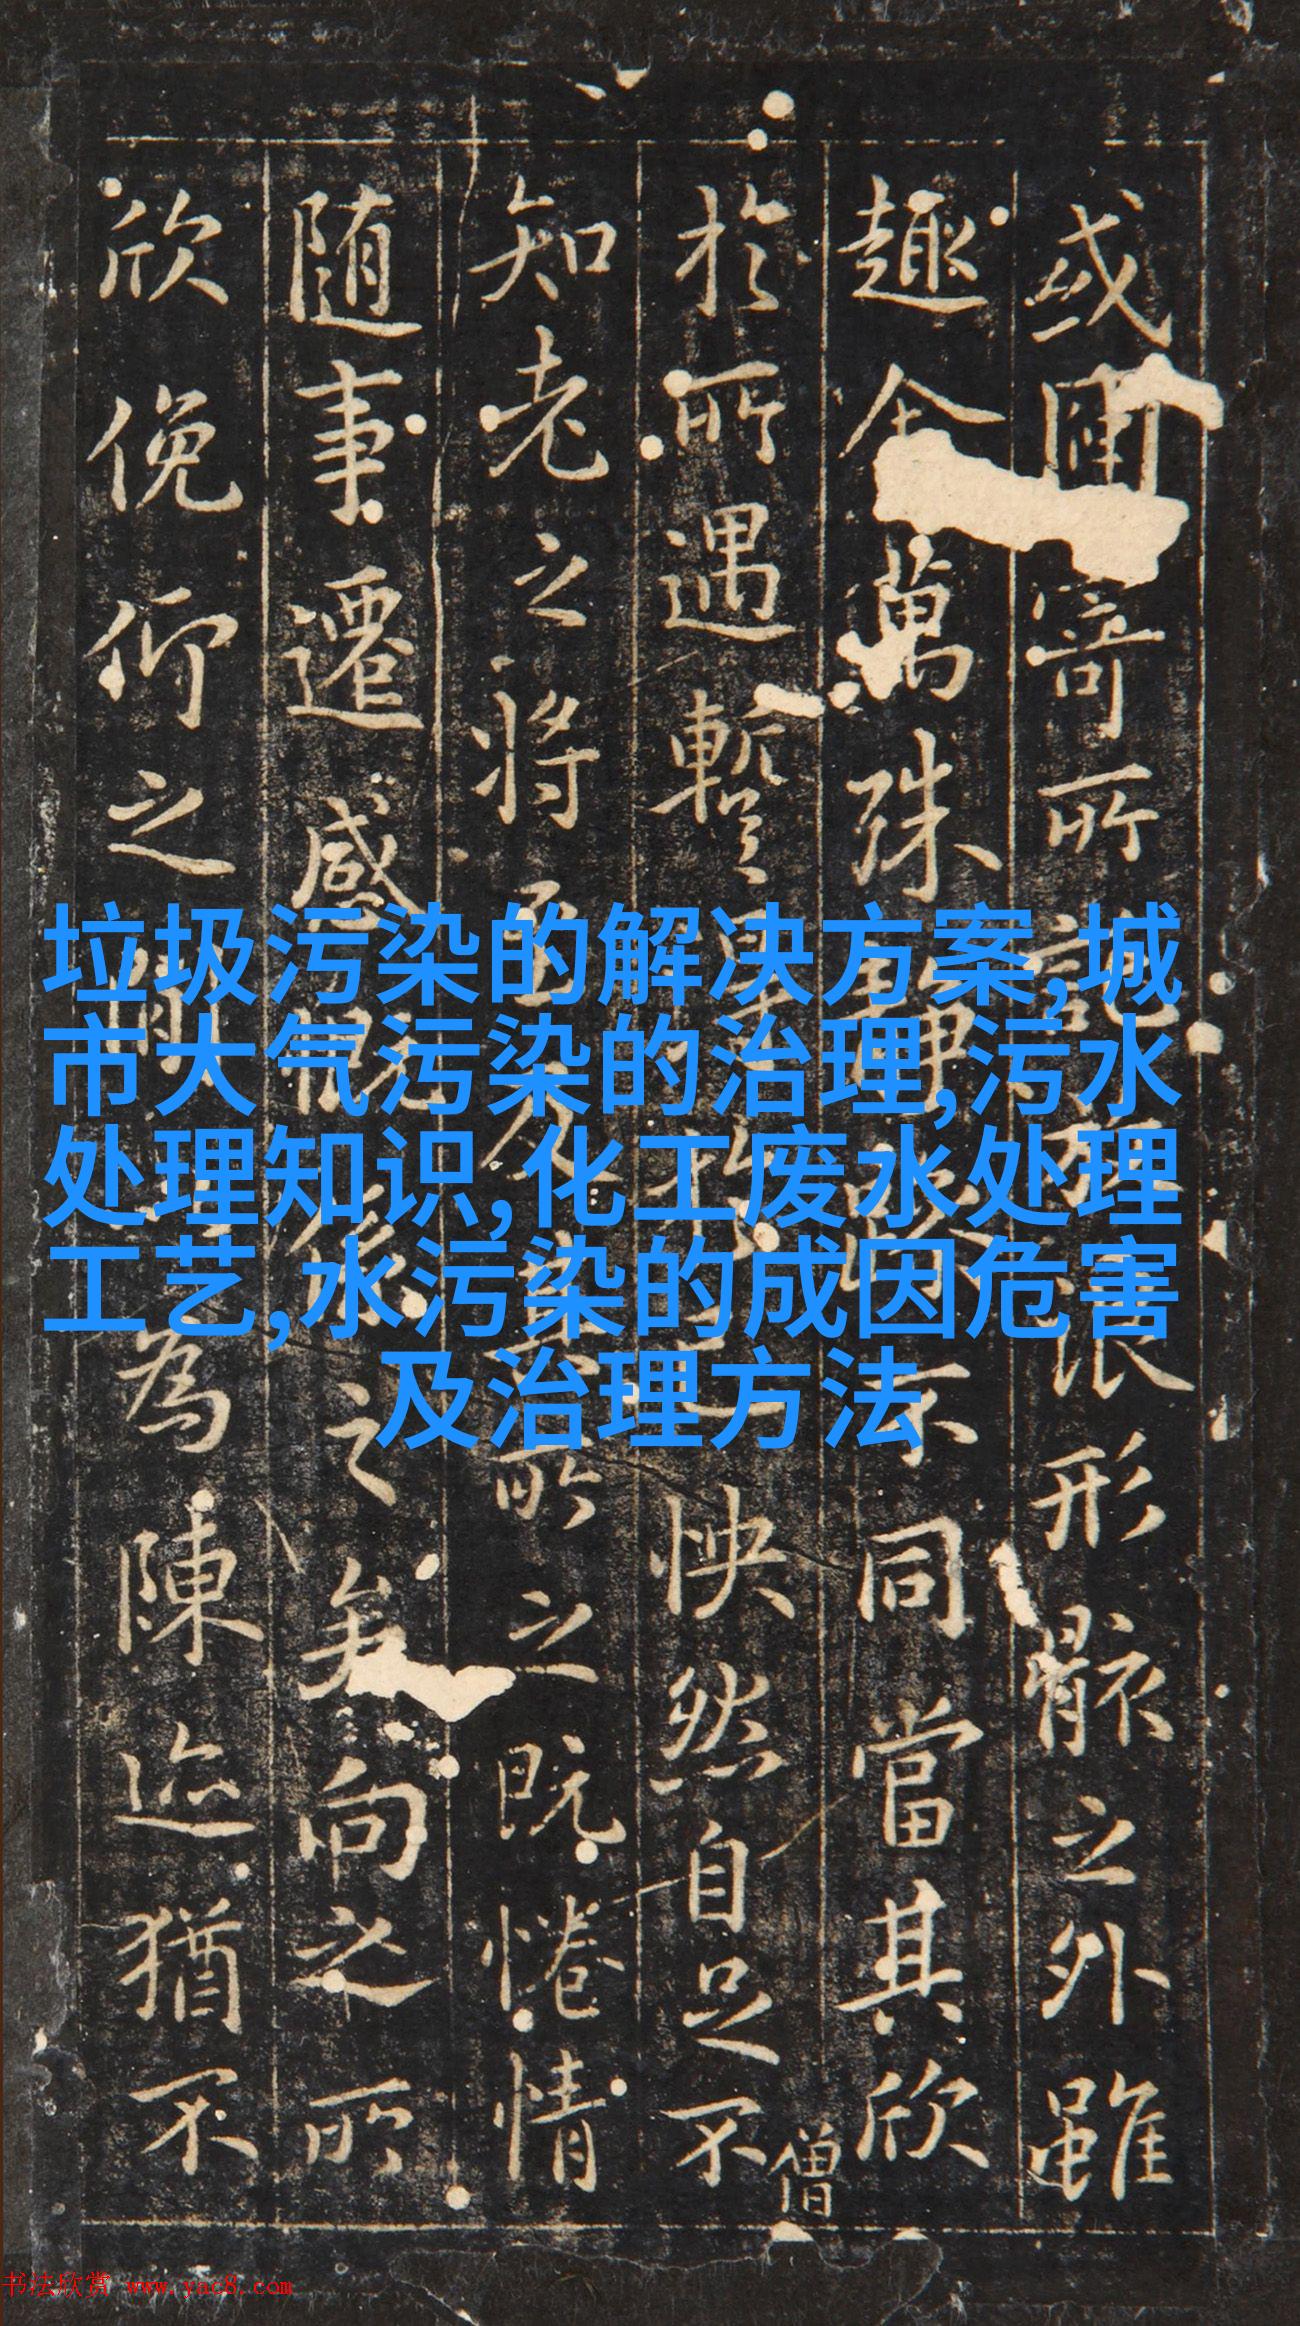 或因寄所託放浪形骸之外雖
趣舍萬殊静躁不同當其欣
於所遇暫得於己怏然自足不
僧
知老之将至及其所之既惓情
随事遷感慨係之矣向之所
欣俛仰之間以為陳迹猶不
垃圾污染的解决方案,城
市大气污染的治理,污水
处理知识,化工废水处理
工艺,水污染的成因危害
及治理方法
书法欣赏 www.yac8.com